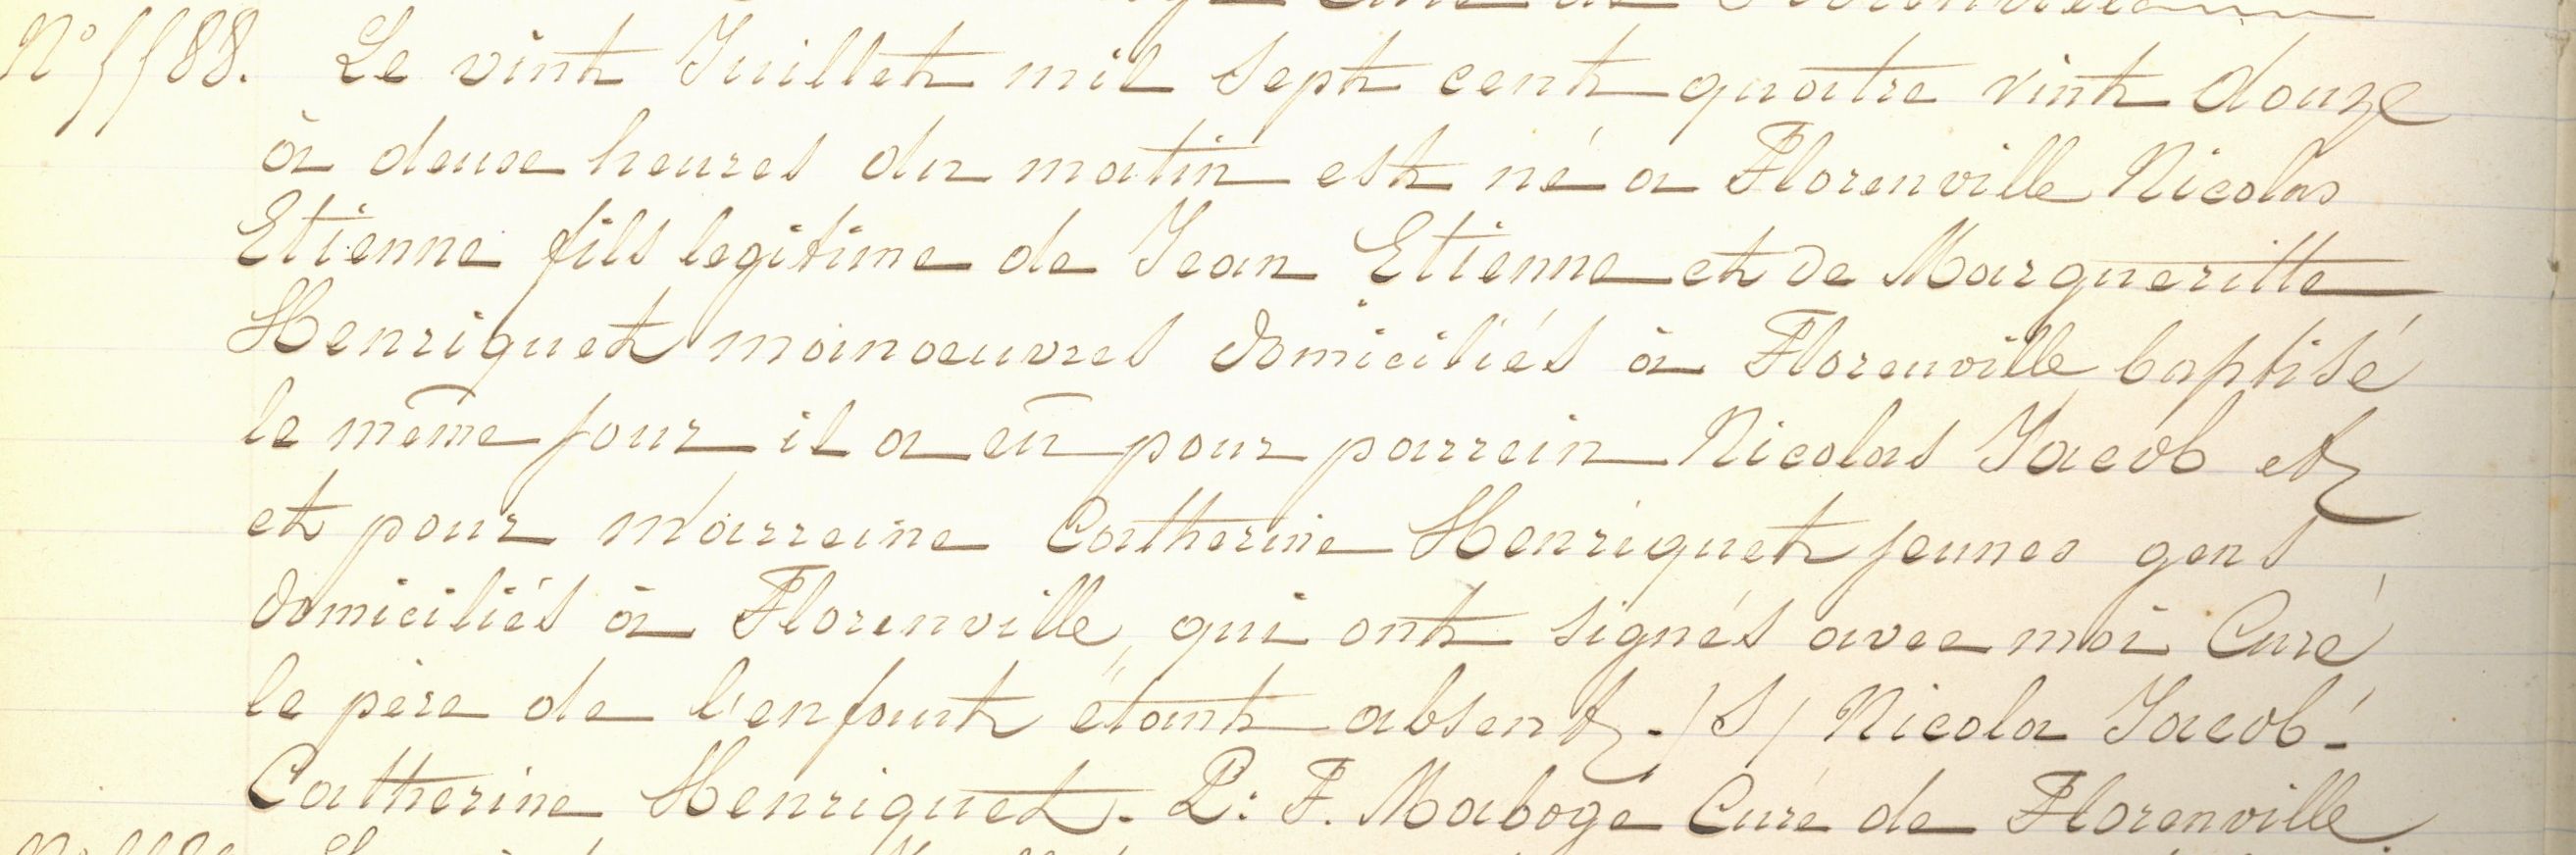 N° 1188. Le vint Juillet mil sept cent quatre vint douze
à deux heures du matin est né a Florenville Nicolas
Etienne fils legitime de Jean Etienne et de Margueritte
Henriquet mainoeuvres domiciliés à Florenville baptisé
le même jour il a eû pour parrein Nicolas Jacob et
et pour marreine Catherine Henriquet jeunes gens
domiciliés à Florenville, qui ont signés avec moi Curé
le père de l'enfant étant absent. /S/ Nicola Jacob.
Catherine Henriquet. P. F. Maboge Curé de Florenville